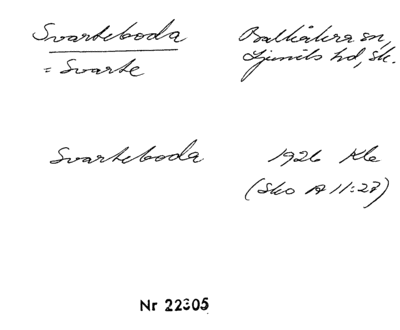 Svarteboda Balkåkra sn,
= Svarte Ljunits hd, Sk.
Svarteboda 1926 Kle
(Sko A 11:28)
Nr 22305